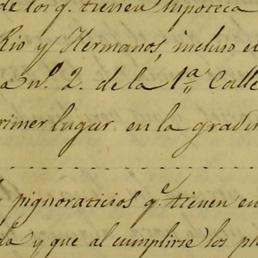 de los q. tienen hipoteca
Rio y Hermanos, incluso el
a nº. 2. de la 1ª Calle
primer lugar en la gradu
pignoraticios q. tienen en
da y que al cumplirse los pl